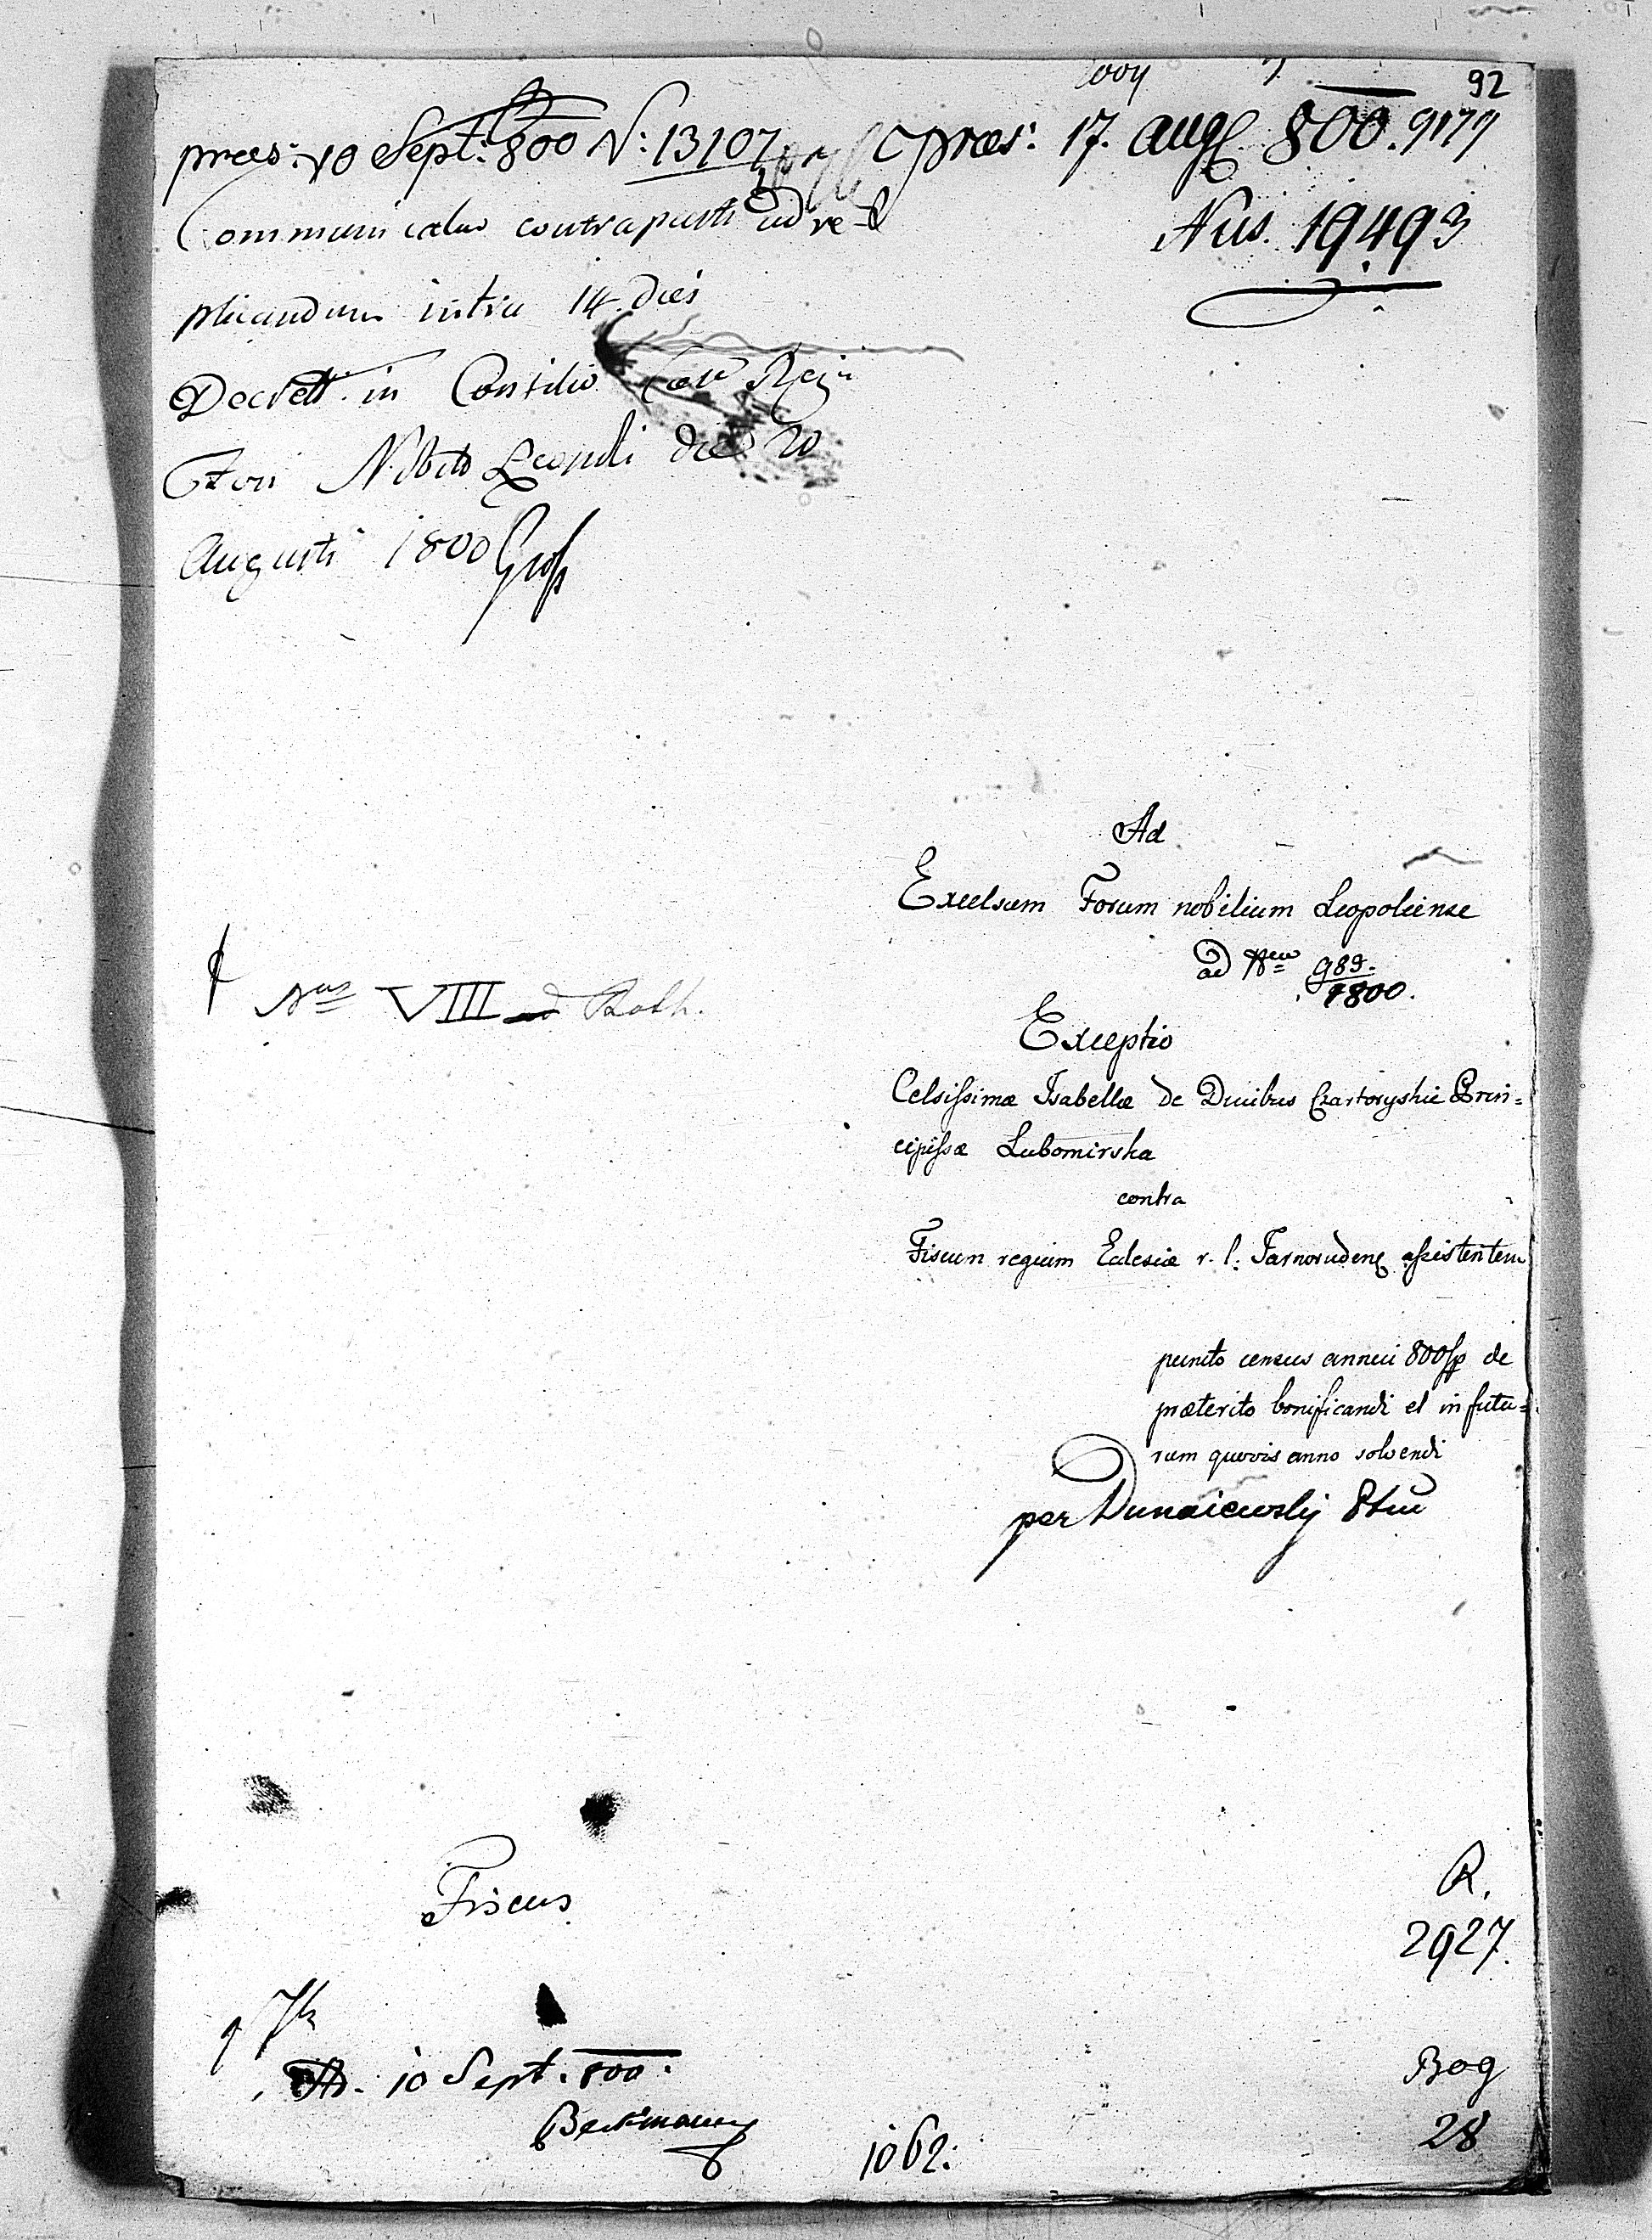 92
praes: 10 Sept: 800 N: 13107
praes: 17. aug. 800. 9179
Nus. 19493
Communicatur contraparti ad re-
plicandum intra 14 dies
Decret. in Consilio Caes Reg:
Fori Nobil. Leopoli die 20
Augusti 1800
Ad
Excelsum Forum nobilium Leopoliense
ad Nrum 989.
1800.
Nus VIII ad Roth.
Exceptio
Celsissimæ Isabellæ de Ducibus Czartoryskie Prin=
cipissæ Lubomirska
contra
Fiscum regium Eclesiæ r. l. Tarnorudens assistentem
puncto census annui 800 fp de
præterito bonificandi et in futu=
rum quovis anno solvendi
per Dunaiewsky
Fiscus
R.
2927.
10 Sept. 800.
Beckmann
1062.
Bog
28